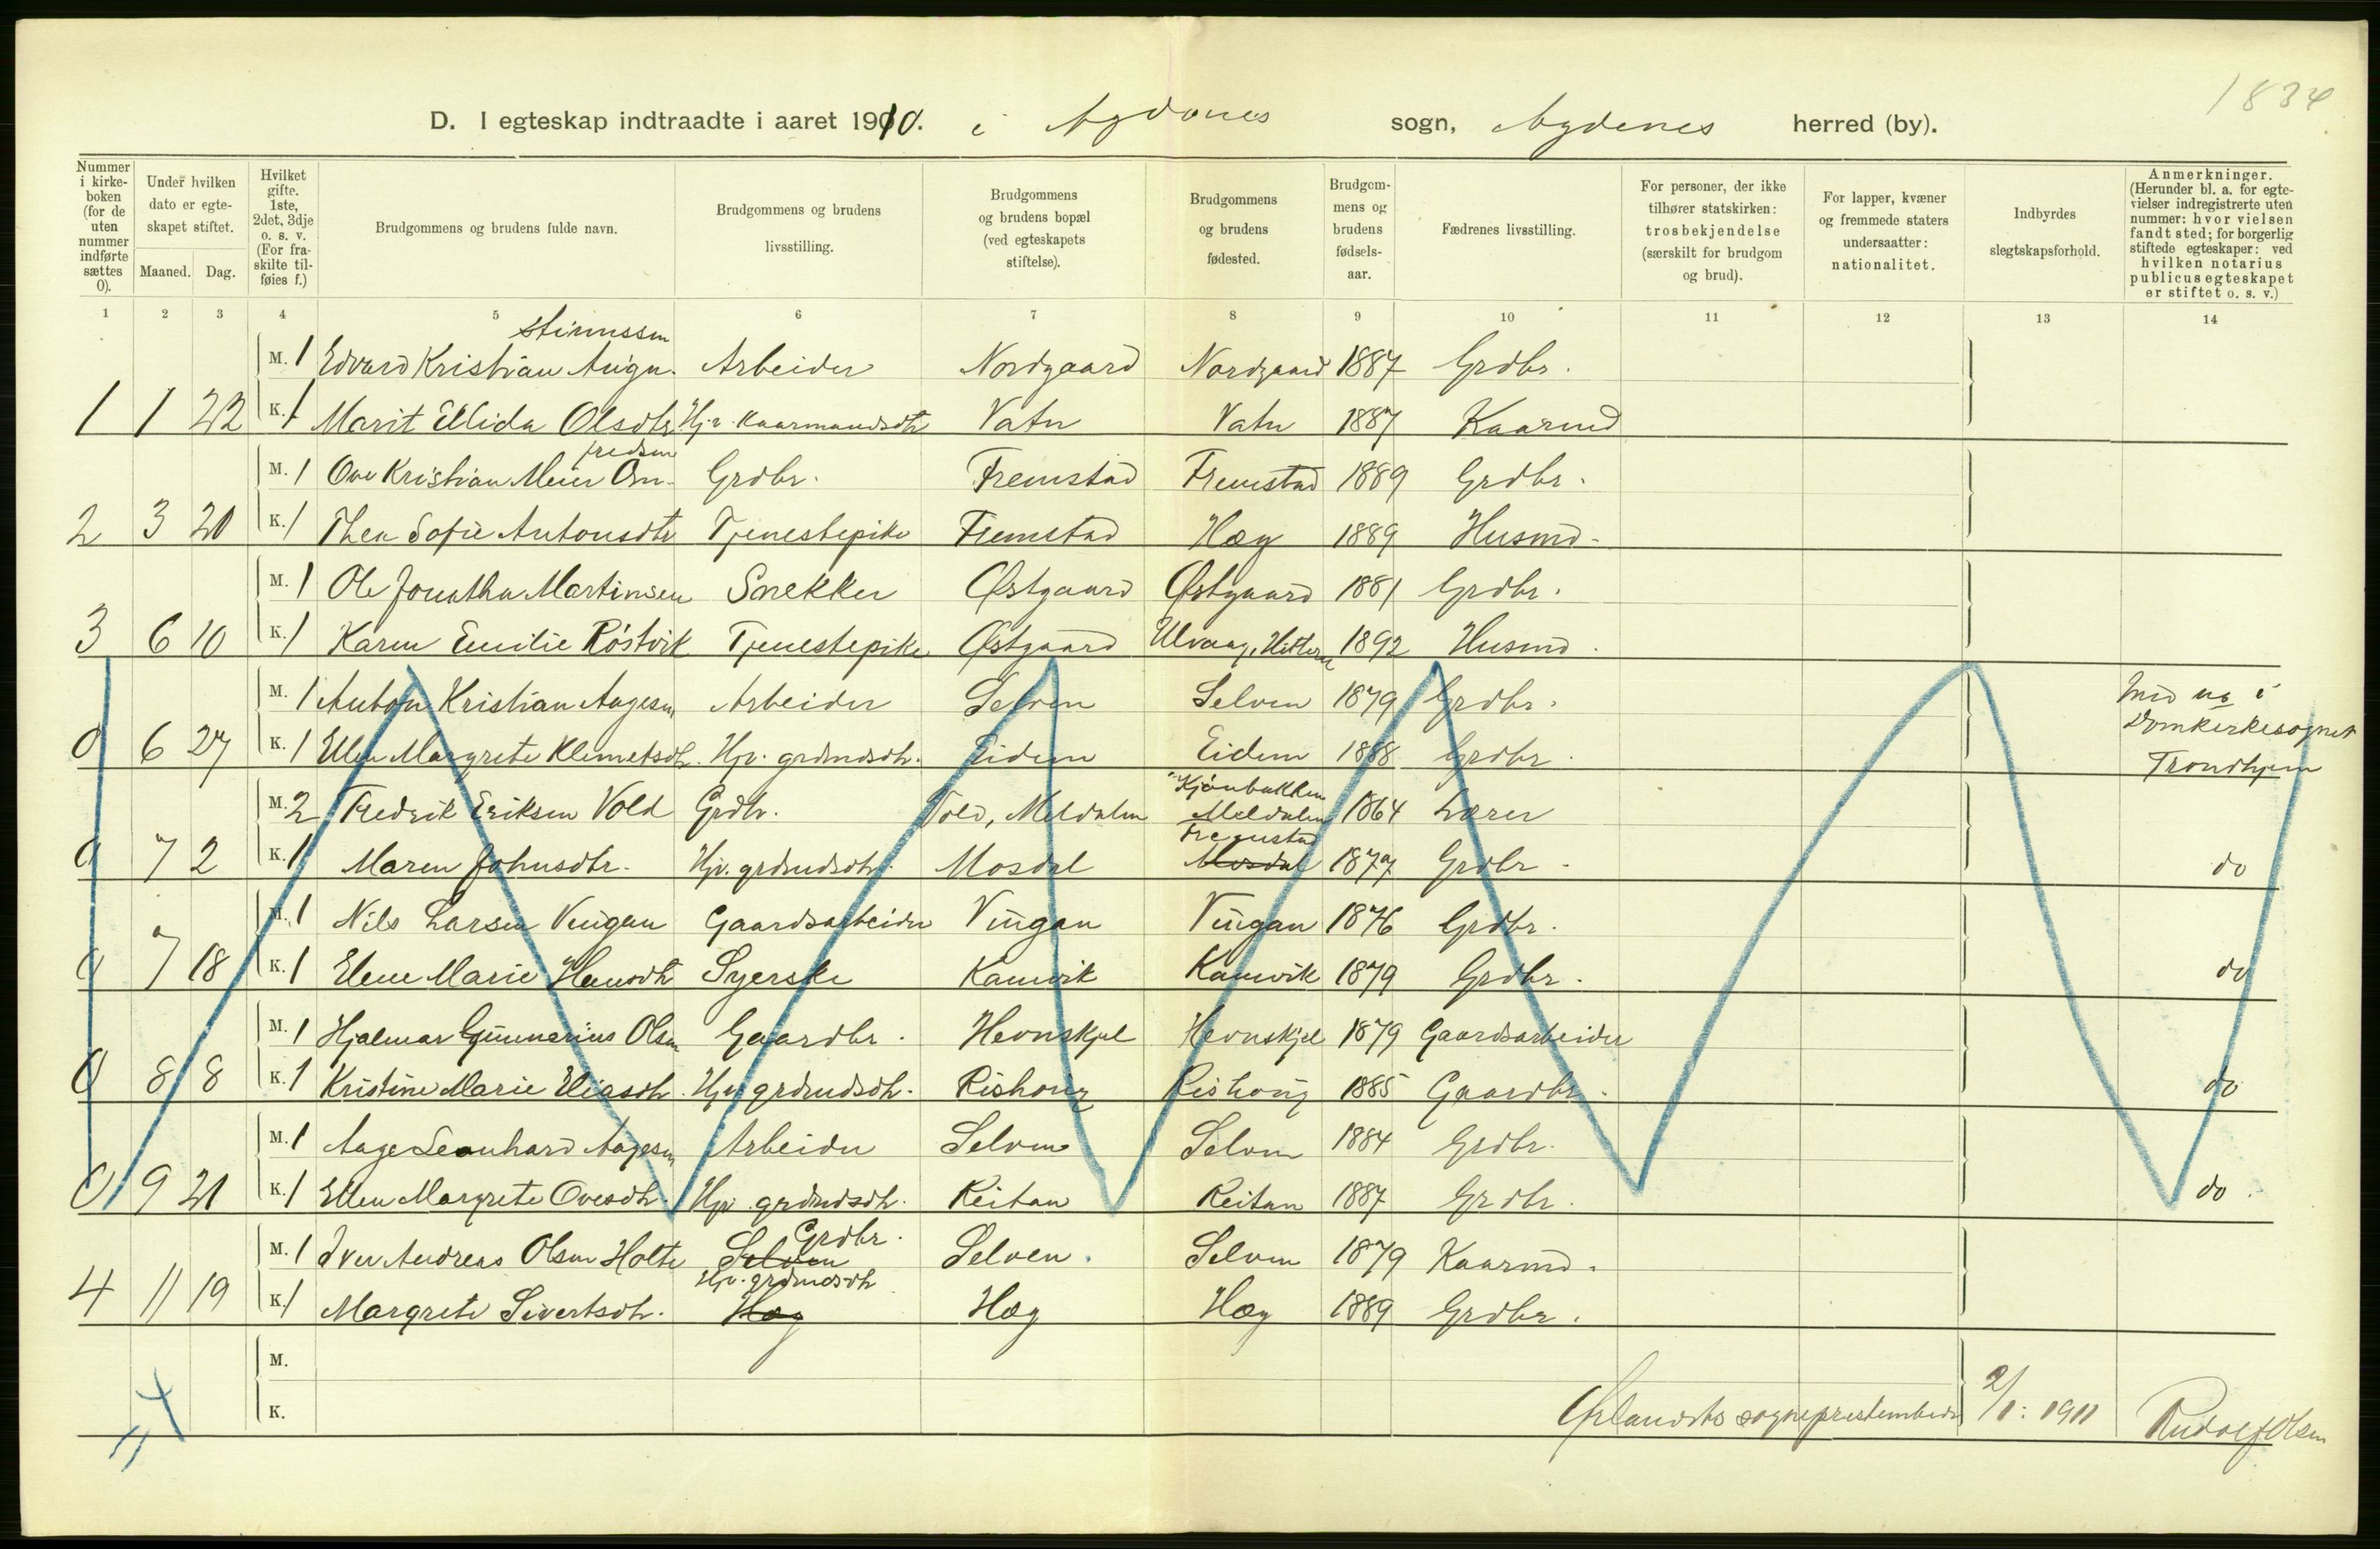 1834
D. I egteskap indtraadte i aaret 1910. i Agdenes sogn, Agdenes herred (by).
Nummer i kirke- boken (for de uten nummer indførte sættes 0).
Under hvilken dato er egte- skapet stiftet.
Maaned. Dag.
Hvilket gifte. 1ste, 2det, 3dje o. s. v. (For fra- skilte til- føies f.)
Brudgommens og brudens fulde navn.
Brudgommens og brudens livsstilling.
Brudgommens og brudens bopæl (ved egteskapets stiftelse).
Brudgommens og brudens fødested.
Brudgom- mens og brudens fødsels- aar.
Fædrenes livsstilling.
For personer, der ikke tilhører statskirken: trosbekjendelse (særskilt for brudgom og brud).
For lapper, kvæner og fremmede staters undersaatter: nationalitet.
Indbyrdes slegtskapsforhold.
Anmerkninger. (Herunder bl. a. for egte- vielser indregistrerte uten nummer: hvor vielsen fandt sted; for borgerlig stiftede egteskaper: ved hvilken notarius publicus egteskapet er stiftet o. s. v.)
1 2 3 4 5 6 7 8 9 10 11 12 13 14
stinussen
M. 1 Edvard Kristian Augu. Arbeider Nordgaard Nordgaard 1887 Grdbr.
1 1 22 K. 1 Marit Ellida Olsdtr. Hjv. kaarmandsdtr Vatn Vatn 1887 Kaarmd
fredsen
M. 1 Ove Kristian Meier Om- Grdbr. Fremstad Fremstad 1889 Grdbr.
2 3 20 K. 1 Thea Sofie Antonsdtr Tjenestepike Fremstad Hæg 1889 Husmd.
M. 1 Ole Jonatha Martinsen Snekker Østgaard Østgaard 1881 Grdbr.
3 6 10 K. 1 Karen Emilie Røstvik Tjenestepike Østgaard Ulvaag, Hitteren 1892 Husmd.
M. 1 Anton Kristian Aagesen Arbeider Selven Selven 1879 Grdbr. Md no i
Domkirkesognet
0 6 27 K. 1 Ellen Margrete Klemetsdtr. Hjv. grdmdsdtr. Eidem Eidem 1888 Grdbr. Trondhjem
Kjønbakken
M. 2 Fredrik Eriksen Vold Grdbr. Vold, Meldalen Meldalen 1864 Lærer
Fremstad
0 7 2 K. 1 Maren Johnsdtr. Hjv. grdmdsdtr. Mosdal Mosdal 1877 Grdbr. do
M. 1 Nils Larsen Vingan Gaardsarbeider Vingan Vingan 1876 Grdbr.
0 7 18 K. 1 Elene Marie Hansdtr Syerske Kamvik Kamvik 1879 Grdbr. do
M. 1 Hjalmar Gunnarius Olsen Gaardbr. Hevnskjel Hevnskjel 1879 Gaardsarbeider
0 8 8 K. 1 Kristine Marie Eliasdtr. Hjv grdmdsdtr. Rishaug Rishaug 1885 Gaardbr. do
M. 1 Aage Leonhard Aagesen Arbeider Selven Selven 1884 Grdbr.
0 9 21 K. 1 Ellen Margrete Ovesdtr. Hjv. grdmdsdtr. Reitan Reitan 1887 Grdbr. do.
Grdbr.
M. 1 Iver Andreas Olsen Holte Selven Selven. Selven 1879 Kaarmd.
Hjv. grdmdsdtr
4 11 19 K. 1 Margrete Sivertsdtr. Hæg Hæg Hæg 1889 Grdbr.
M.
K.
4
Ørlandets sogneprestembede 2/1: 1911 Rudolf Olsen